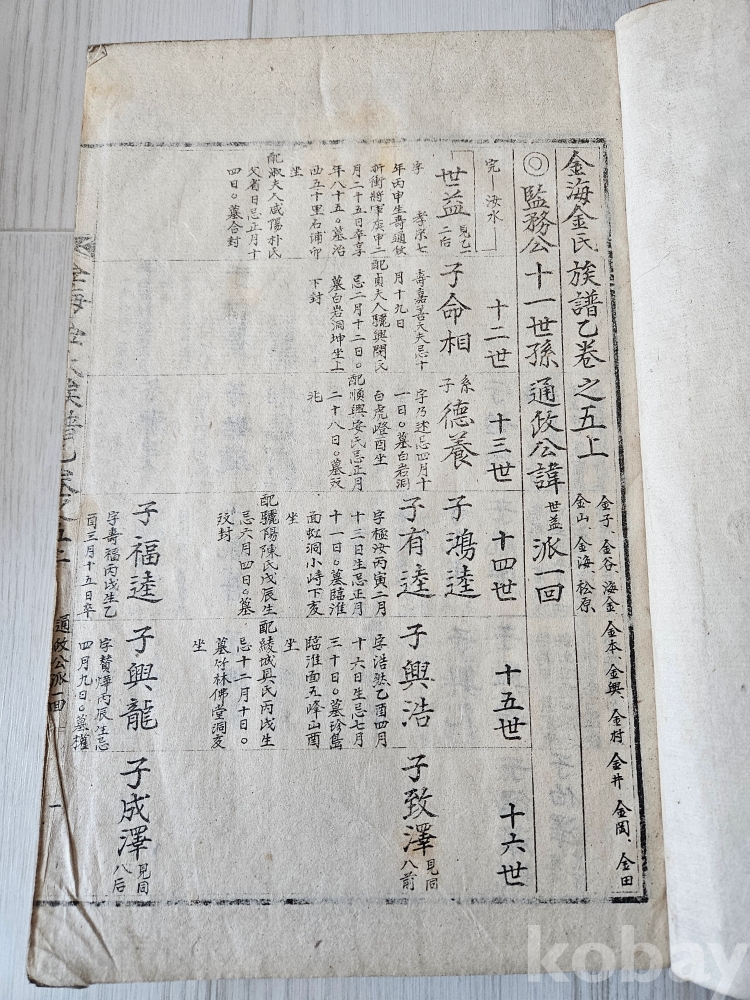 金海金氏族譜乙卷之五上
金子、金谷 海金 金本、金興、金村 金井 金岡、金田
金山、金海、松原
◎監務公十一世孫通政公諱世益派一回
十二世
十三世
十四世
十五世
十六世
完一汝水
世益見乙一
二右
字孝深七
年丙申生壽通政
折衝將軍庚申二
月二十五日卒享
年八十五。墓治
西五十里石浦卯
坐
配淑夫人咸陽朴氏
父省日忌正月十
四日。墓合封
子命相
壽嘉善大夫忌十
月十九日
配貞夫人驪興閔氏
忌二月十二日。
墓白岩洞坤坐上
下封
系子德養
字乃述忌四月十
一日。墓白岩洞
白虎嶝酉坐
配順興安氏忌正月
二十八日。墓双
兆
子鴻逵
子有逵
字極汝丙寅二月
十三日生忌正月
十一日。墓臨淮
面虹洞小峙下亥
坐
配驪陽陳氏戊辰生
忌六月四日。墓
双封
子興浩
字浩然乙酉四月
十六日生忌七月
三十日。墓珍島
臨淮面五峰山酉
坐
配綾城具氏丙戌生
忌十二月十日。
墓竹林佛堂洞亥
坐
子致澤見同
八前
子福逵
字壽福丙戌生乙
酉三月十五日卒
子興龍
字贊燁丙辰生忌
四月九日。墓權
子成澤見同
八后
通政公派一回
一
kobay